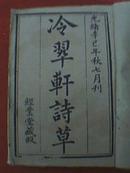 光緒辛巳年秋七月刊
冷翠軒詩草
經業堂藏板